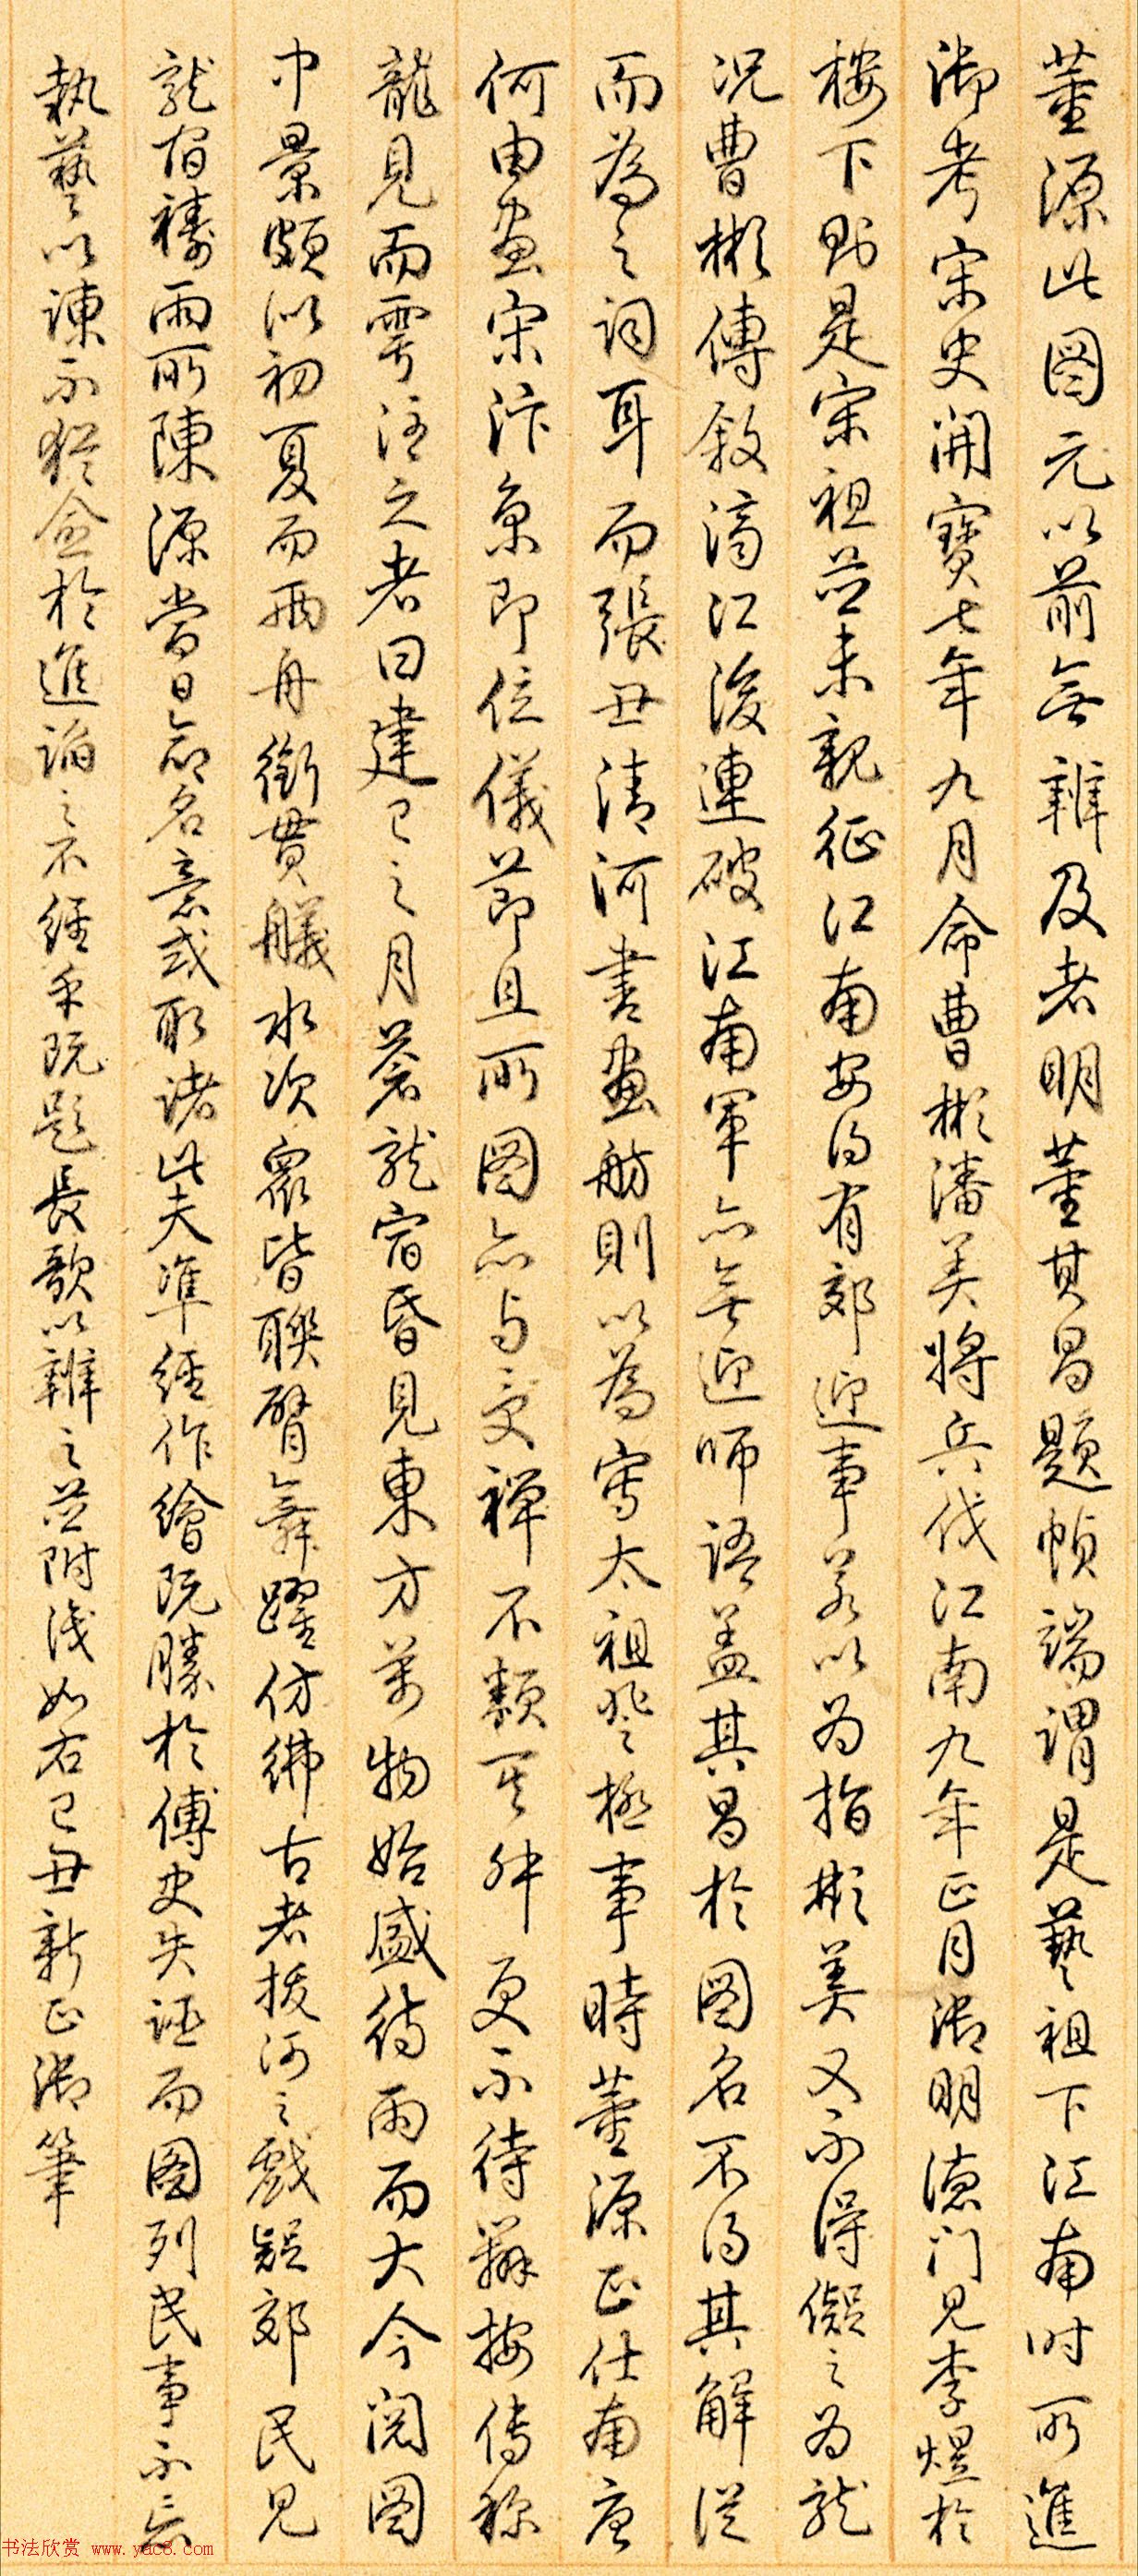 董源此图元以前無辨及者明董其昌題幀端謂是藝祖下江南时所進
御考宋史開寶七年九月命曹彬潘美将兵伐江南九年正月御明德门見李煜於
楼下則是宋祖並未親征江南安得有郊迎事若以为指彬美又不得儗之为龍
况曹彬傳敘濟江後連破江南軍亦無迎師語盖其昌於图名不得其解從
而為之詞耳而張丑清河書畫舫則以為寫太祖登極事時董源正仕南唐
何由畫宋汴京即位儀節且所图亦与受禅不類其舛更不待辨按傳称
龍見而雩注之者曰建巳之月蒼龍宿昏見東方萬物始盛待雨而大今閱图
中景頗似初夏而兩舟銜貫艤水次衆皆聯臂舞躍仿彿古者拔河之戲疑郊民見
龍宿禱雨所陳源當日命名意或取诸此夫準經作繪既勝於傅史失誣而图列民事不云
執藝以諫不猶愈於進諂之不經乎既題長歌以辨之並附識如右己丑新正御筆
书法欣赏 www.yac8.com